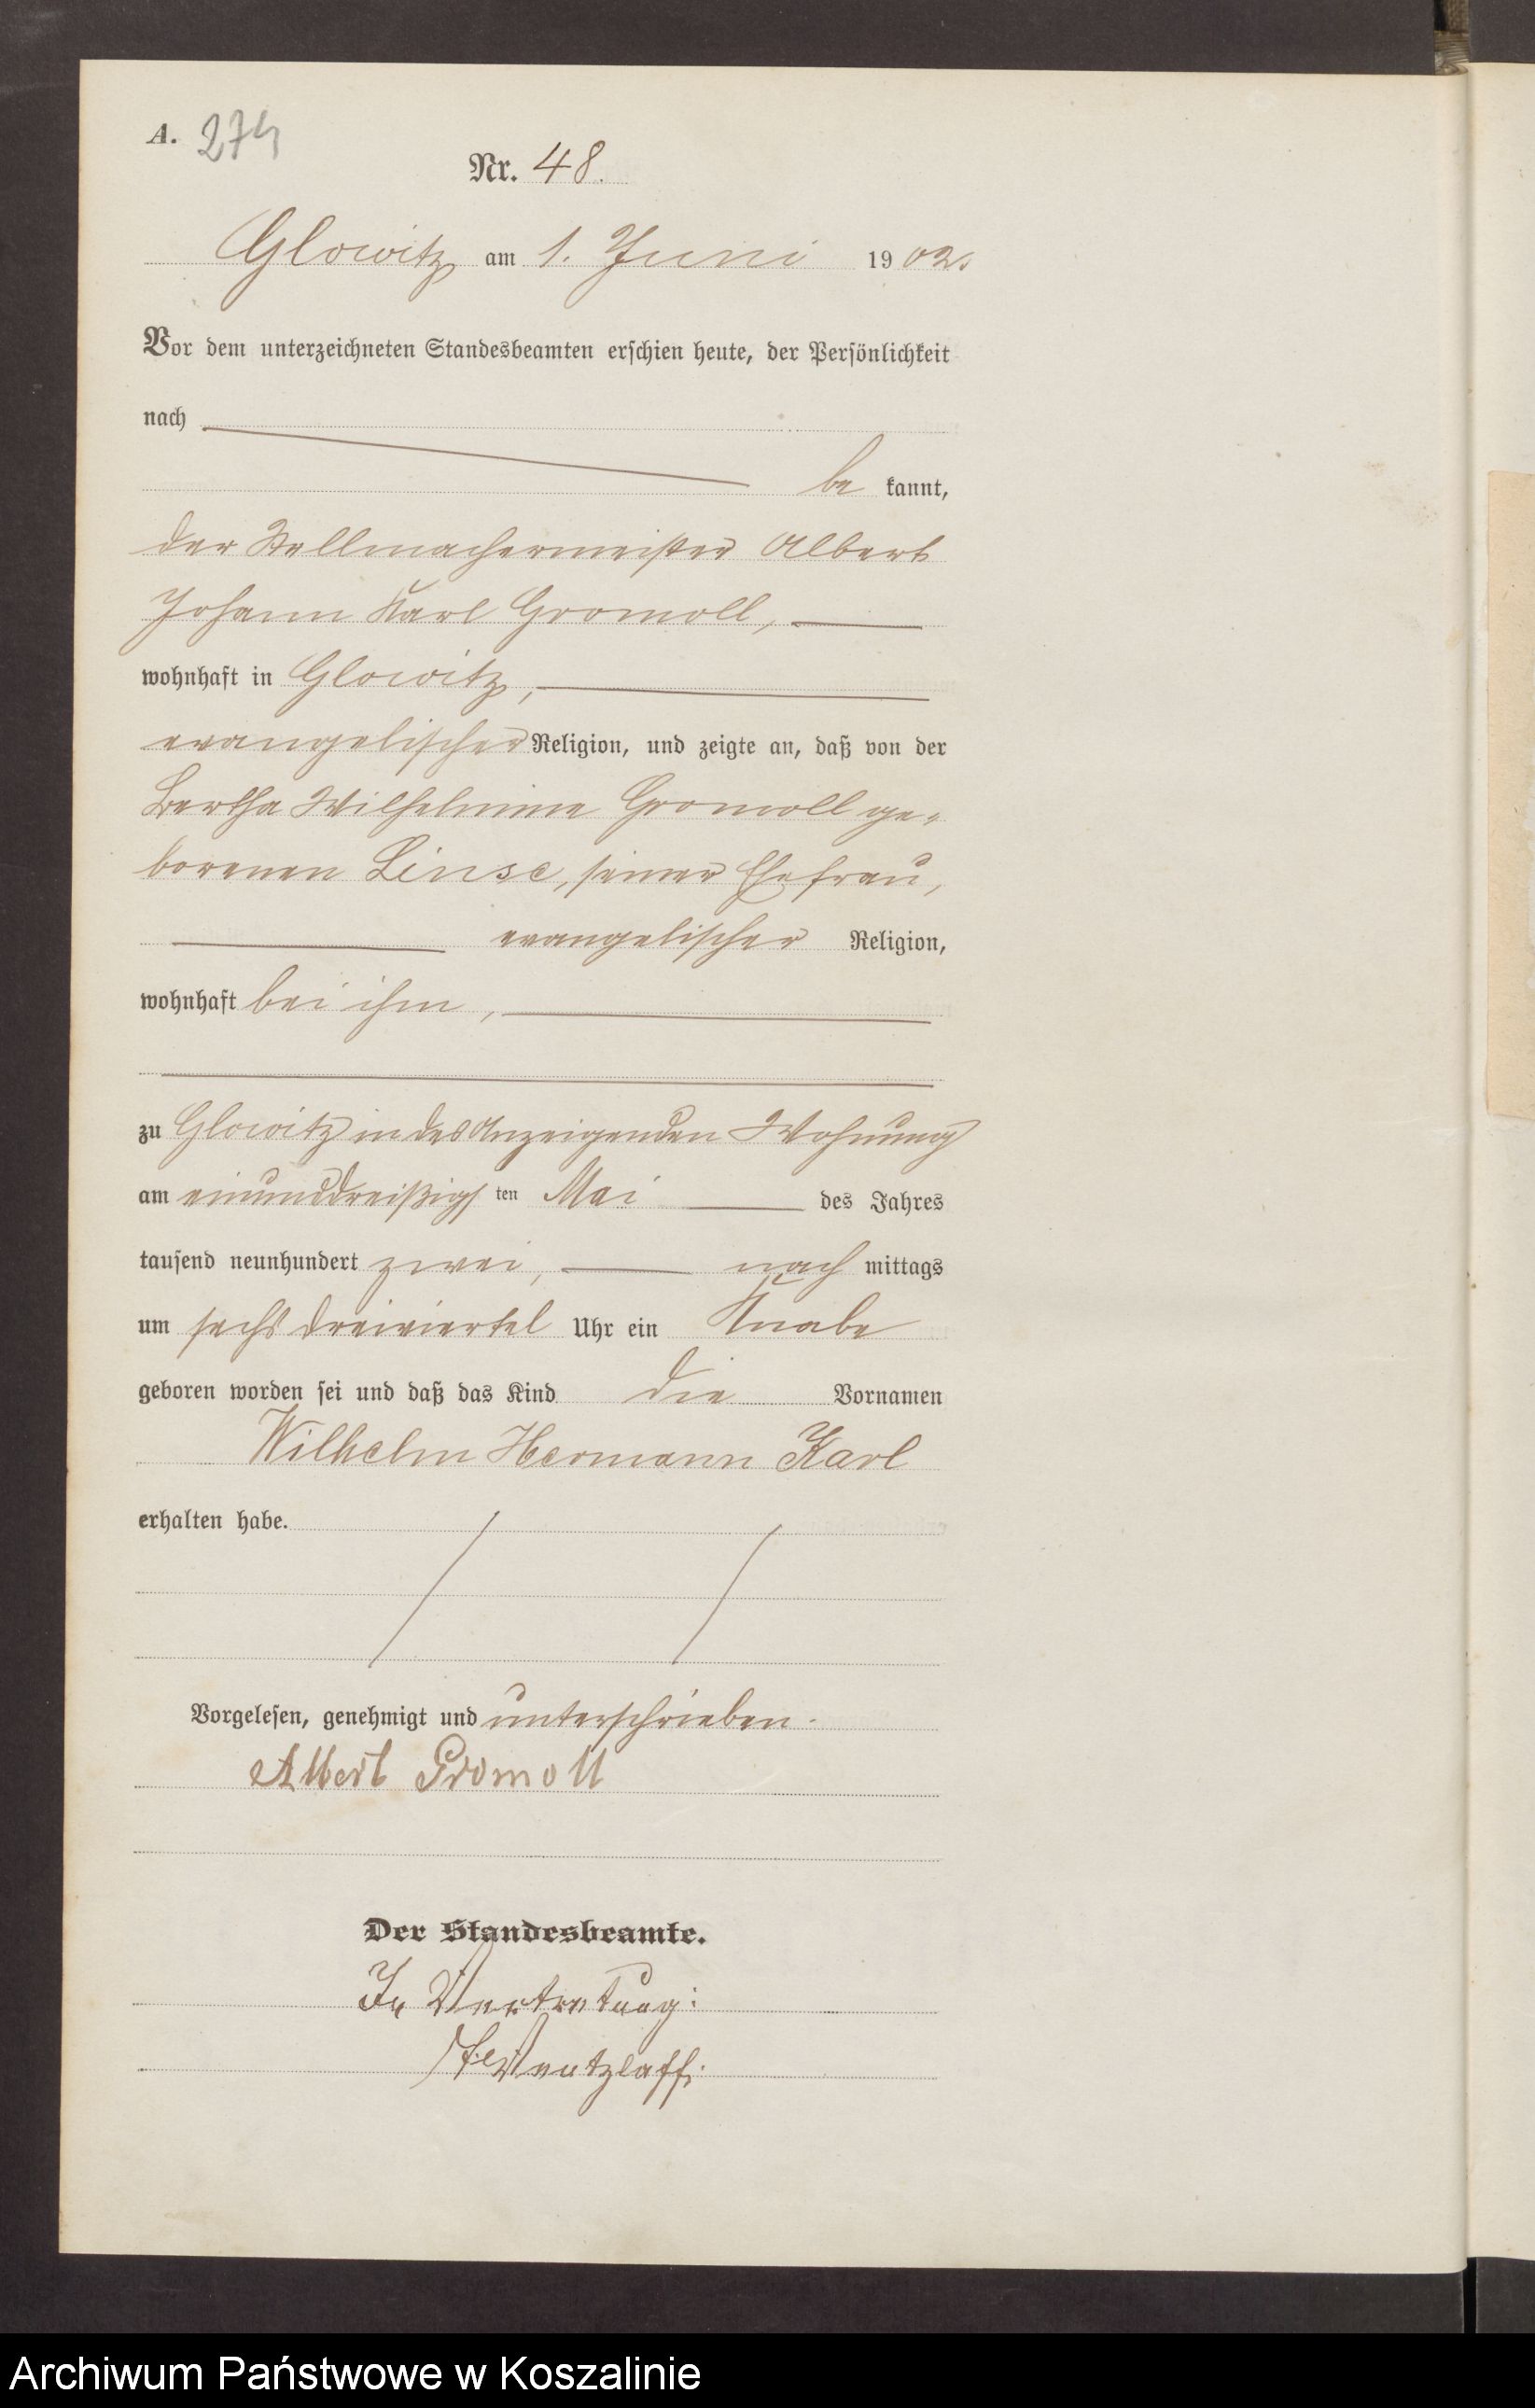 A. 274
Nr. 48.
Glowitz am 1. Juni 1902.
Vor dem unterzeichneten Standesbeamten erschien heute, der Persönlichkeit
nach
be kannt,
der Stellmachermeister Albert
Johann Karl Gromoll,
wohnhaft in Glowitz,
evangelischer Religion, und zeigte an, daß von der
Bertha Wilhelmine Gromoll ge-
borenen Linse, seiner Ehefrau,
evangelischer Religion,
wohnhaft bei ihm,
zu Glowitz in des Anzeigenden Wohnung
am einunddreißigsten Mai des Jahres
tausend neunhundert zwei, nach mittags
um sechs dreiviertel Uhr ein Knabe
geboren worden sei und daß das Kind die Vornamen
Wilhelm Hermann Karl
erhalten habe.
Vorgelesen, genehmigt und unterschrieben.
Albert Gromoll
Der Standesbeamte.
In Vertretung:
Wentzlaff.
Archiwum Państwowe w Koszalinie